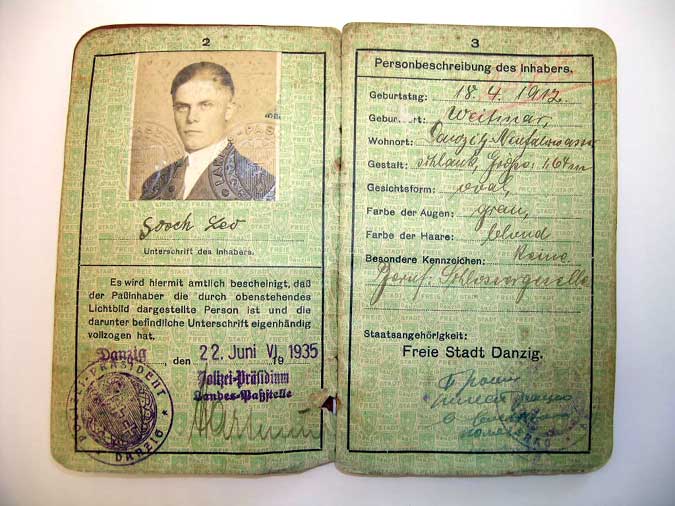 2
Gooch Leo
Unterschrift des Inhabers.
Es wird hiermit amtlich bescheinigt, daß
der Paßinhaber die durch obenstehendes
Lichtbild dargestellte Person ist und die
darunter befindliche Unterschrift eigenhändig
vollzogen hat.
Danzig, den 22. Juni VI. 1935
19
Polizei-Präsidium
Landes-Paßstelle
POLIZEI-PRÄSIDENT
DANZIG
3
Personbeschreibung des Inhabers.
Geburtstag: 18. 4. 1912.
Geburtsort: Weimar,
Wohnort: Danzig Neufahrwasser
Gestalt: schlank, Größe: 1,64 m
Gesichtsform: oval,
Farbe der Augen: grau,
Farbe der Haare: blond
Besondere Kennzeichen: Keine
Beruf: Schlossergeselle
Staatsangehörigkeit:
Freie Stadt Danzig.